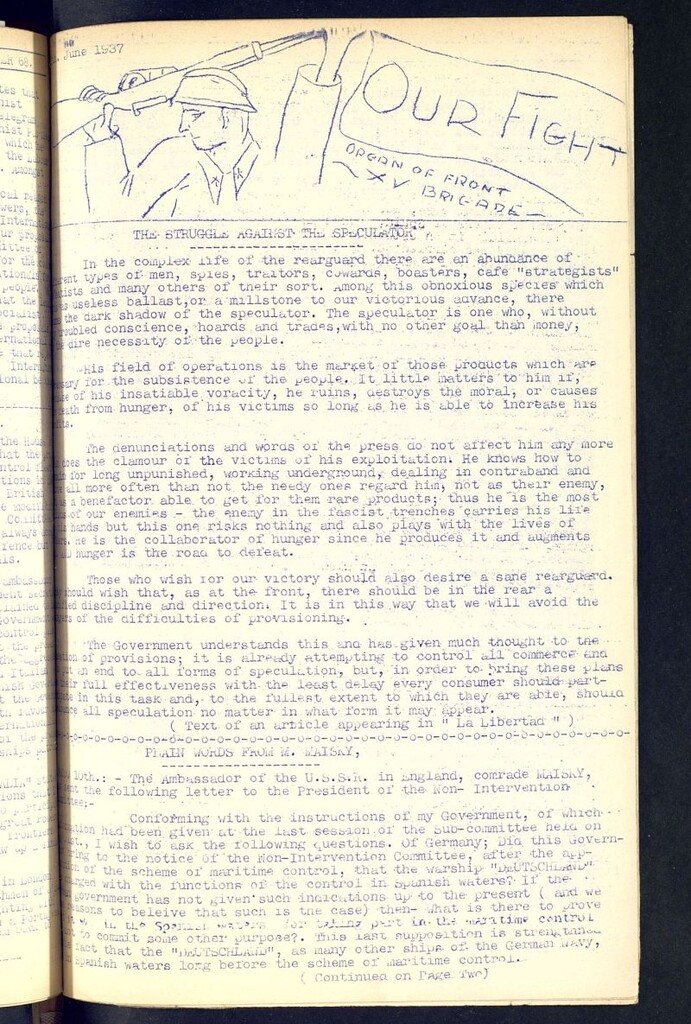 June 1937
OUR FIGHT
ORGAN OF FRONT
XV BRIGADE
THE STRUGGLE AGAINST THE SPECULATOR
In the complex life of the rearguard there are an abundance of
types of men, spies, traitors, cowards, boasters, cafe "strategists"
and many others of their sort. Among this obnoxious species which
useless ballast, or a millstone to our victorious advance, there
the dark shadow of the speculator. The speculator is one who, without
conscience, hoards and trades, with no other goal than money,
dire necessity of the people.
His field of operations is the market of those products which are
for the subsistence of the people. It little matters to him if,
of his insatiable voracity, he ruins, destroys the moral, or causes
from hunger, of his victims so long as he is able to increase his
The denunciations and words of the press do not affect him any more
the clamour of the victims of his exploitation. He knows how to
for long unpunished, working underground, dealing in contraband and
all more often than not the needy ones regard him, not as their enemy,
a benefactor able to get for them rare products; thus he is the most
of our enemies - the enemy in the fascist trenches carries his life
hands but this one risks nothing and also plays with the lives of
He is the collaborator of hunger since he produces it and augments
hunger is the road to defeat.
Those who wish for our victory should also desire a sane rearguard.
should wish that, as at the front, there should be in the rear a
discipline and direction. It is in this way that we will avoid the
of the difficulties of provisioning.
The Government understands this and has given much thought to the
of provisions; it is already attempting to control all commerce and
an end to all forms of speculation, but, in order to bring these plans
full effectiveness with the least delay every consumer should part-
in this task and, to the fullest extent to which they are able, should
all speculation no matter in what form it may appear.
( Text of an article appearing in " La Libertad " )
-o-o-o-o-o-o-o-o-o-o-o-o-o-o-o-o-o-o-o-o-o-o-o-o-o-o-o-o-o-o-o-
PLAIN WORDS FROM M. MAISKY,
10th.: - The Ambassador of the U.S.S.R. in England, comrade MAISKY,
the following letter to the President of the Non- Intervention
Conforming with the instructions of my Government, of which
had been given at the last session of the Sub-committee held on
I wish to ask the following questions. Of Germany; Did this Govern-
to the notice of the Non-Intervention Committee, after the app-
of the scheme of maritime control, that the warship "DEUTSCHLAND"
with the functions of the control in Spanish waters? If the
government has not given such indications up to the present ( and we
to beleive that such is the case) then- what is there to prove
in the Spanish waters for taking part in the maritime control
to commit some other purpose?. This last supposition is strengthened
fact that the "DEUTSCHLAND", as many other ships of the German Navy,
Spanish waters long before the scheme of maritime control.
( Continued on Page Two)